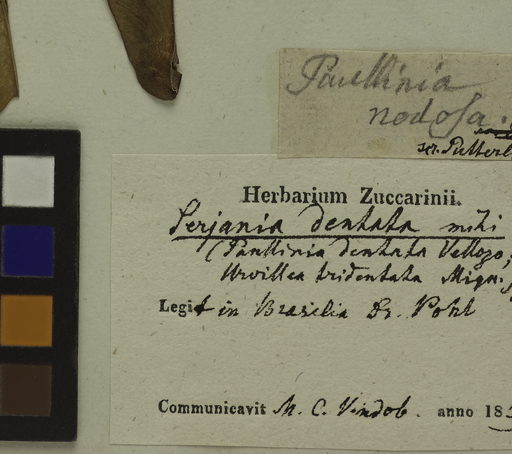 Paullinia
nodosa.
scr. Putterl
Herbarium Zuccarinii.
Serjania dentata mihi
(Paullinia dentata Vellozo,
Urvillea tridentata Miqu.)
Legit in Brasilia Dr. Pohl
Communicavit M. C. Vindob. anno 18